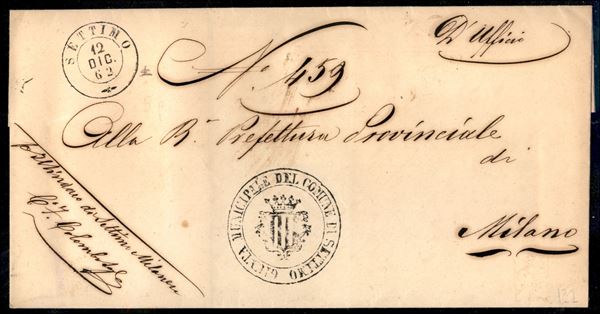 SETTIMO
12
DIC.
62
D'Ufficio
N.º 459
Alla R.ª Prefettura Provinciale
di
Milano
GIUNTA MUNICIPALE DEL COMUNE DI SETTIMO
Sindaco di Settimo Milanese
Colombo
122